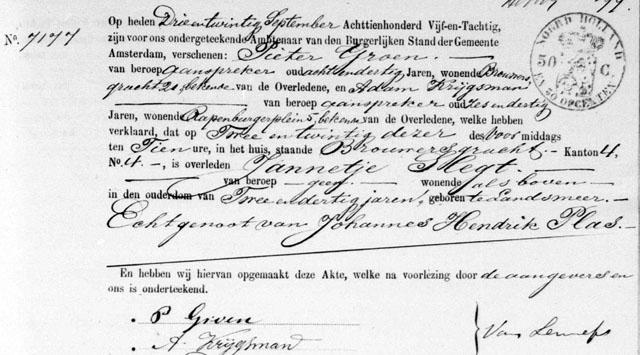 Op heden Drie en twintig September Achttienhonderd Vijf-en-Tachtig,
No. 7177 zijn voor ons ondergeteekende Ambtenaar van den Burgerlijken Stand der Gemeente
Amsterdam, verschenen: Pieter Groen
van beroep aanspreker oud acht en dertig Jaren, wonende Brouwers
gracht 20, bekende van de Overledene, en Adam Krijgsman
van beroep aanspreker oud Zes en dertig
Jaren, wonende Rapenburgerplein 5, bekende van de Overledene, welke hebben
verklaard, dat op Twee en twintig dezer des voor middags
ten Tien ure, in het huis, staande Brouwersgracht Kanton 4,
No. 4, is overleden Jannetje Slegt
van beroep geen wonende als boven
in den ouderdom van Twee en dertig jaren, geboren te Landsmeer.
Echtgenoot van Johannes Hendrik Plas.
En hebben wij hiervan opgemaakt deze Akte, welke na voorlezing door de aangevers en
ons is onderteekend.
P Groen
A. Krijgsman
Van Lennep
NOORD HOLLAND
50 C.
EN 38 OPCENTEN